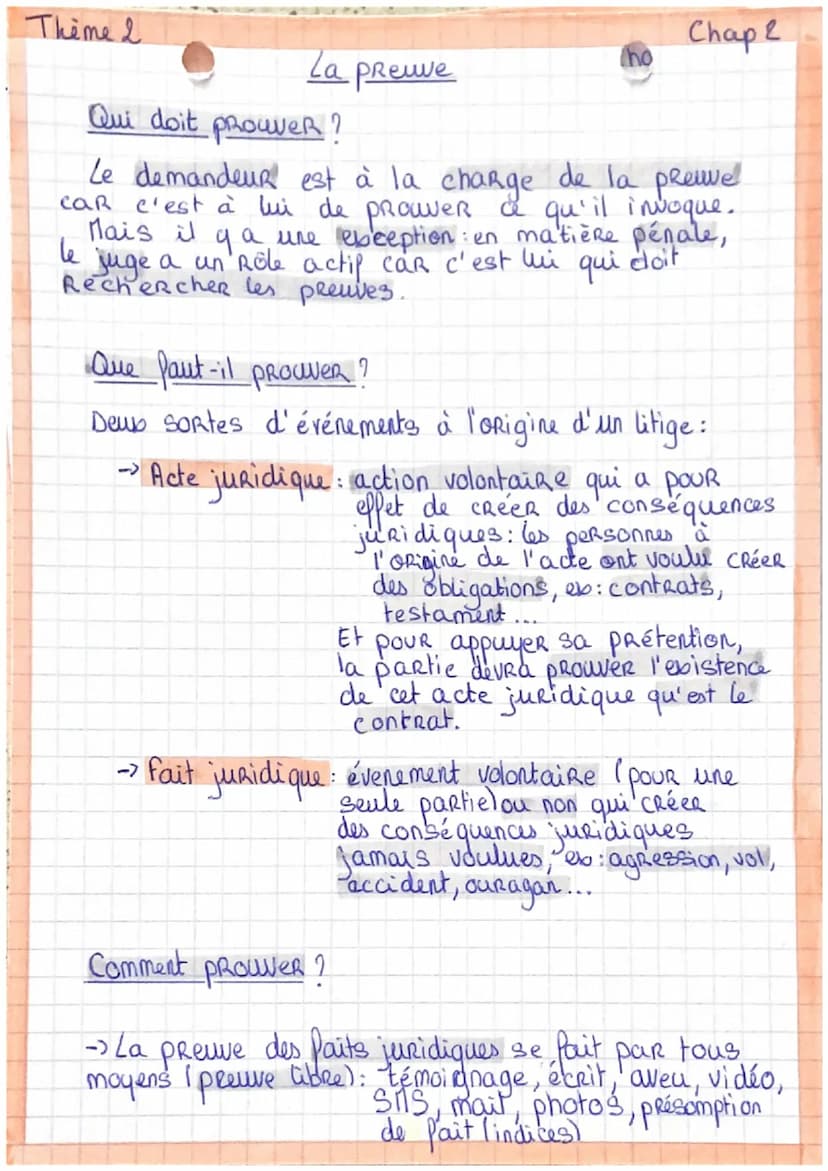 Thème 2
Chap 2
La preuve
Qui doit prouver ?
Le demandeur est à la charge de la preuve
car c'est à lui de prouver ce qu'il invoque.
Mais il y a une exception : en matière pénale,
le juge a un rôle actif car c'est lui qui doit
rechercher les preuves.
Que faut-il prouver ?
Deux sortes d'événements à l'origine d'un litige :
-> Acte juridique : action volontaire qui a pour
effet de créer des conséquences
juridiques : les personnes à
l'origine de l'acte ont voulu créer
des obligations, ex : contrats,
testament ...
Et pour appuyer sa prétention,
la partie devra prouver l'existence
de cet acte juridique qu'est le
contrat.
-> Fait juridique : évenement volontaire (pour une
seule partie) ou non qui créer
des conséquences juridiques
jamais voulues, ex : agression, vol,
accident, ouragan ...
Comment prouver ?
-> La preuve des faits juridiques se fait par tous
moyens (preuve libre) : témoignage, écrit, aveu, vidéo,
SMS, mail, photos, présomption
de fait (indices)